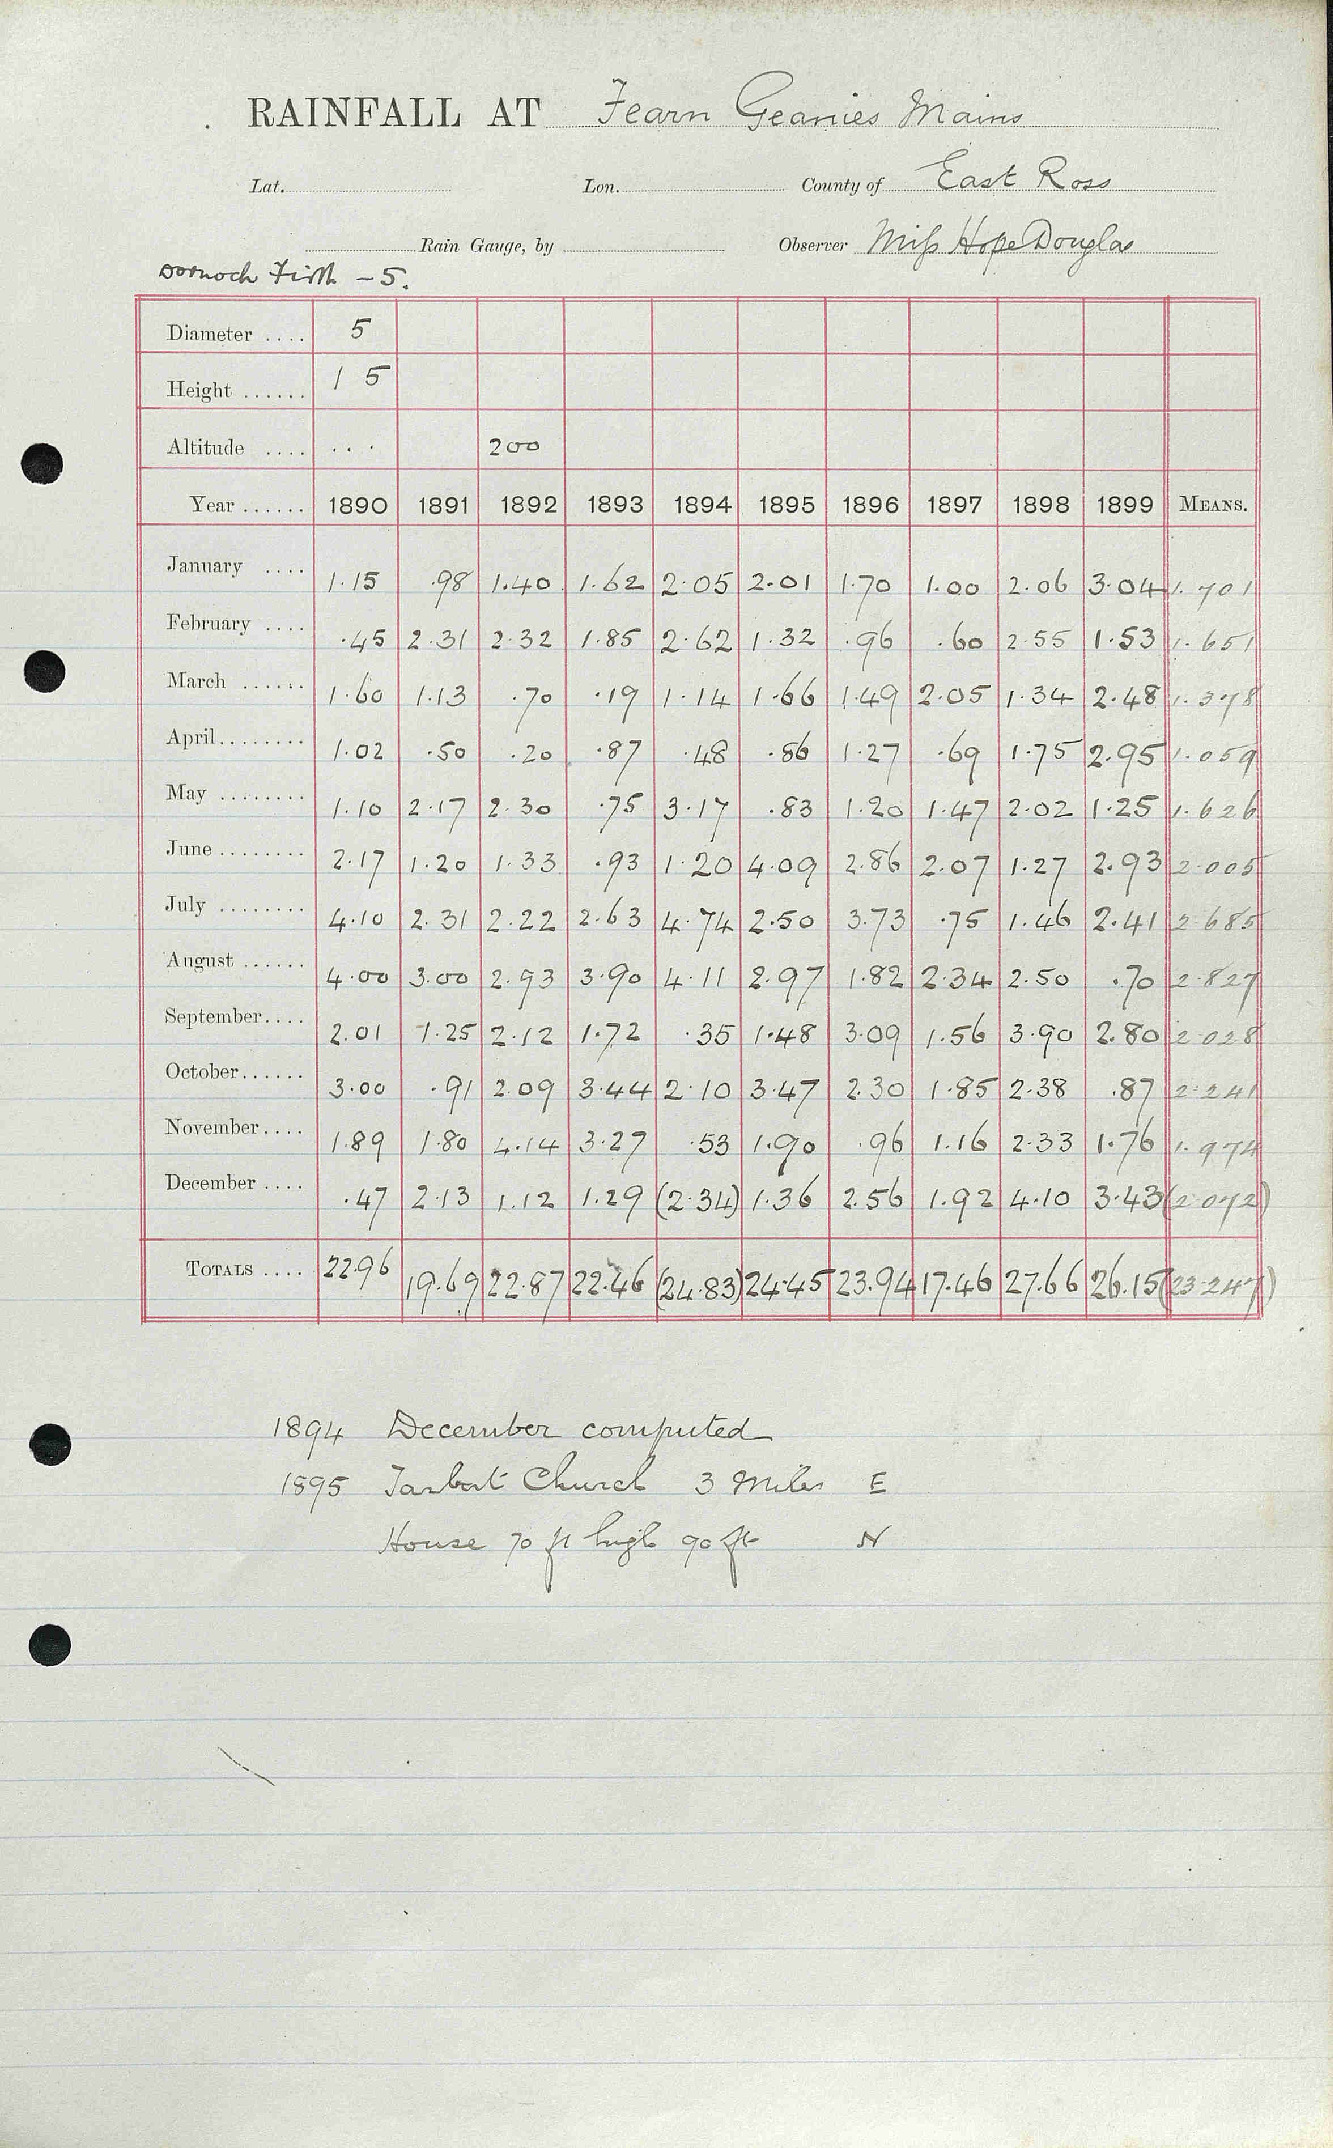 RAINFALL AT Fearn Geanies Mains
Lat. Lon. County of East Ross
Rain Gauge, by Observer Miss Hope Douglas
Dornoch Firth - 5.
Diameter .... 5
Height ...... 1 5
Altitude .... ... 200
Year ...... 1890 1891 1892 1893 1894 1895 1896 1897 1898 1899 MEANS.
January .... 1.15 .98 1.40 1.62 2.05 2.01 1.70 1.00 2.06 3.04 1.701
February .... .45 2.31 2.32 1.85 2.62 1.32 .96 .60 2.55 1.53 1.651
March ...... 1.60 1.13 .70 .19 1.14 1.66 1.49 2.05 1.34 2.48 1.378
April ........ 1.02 .50 .20 .87 .48 .86 1.27 .69 1.75 2.95 1.059
May ........ 1.10 2.17 2.30 .75 3.17 .83 1.20 1.47 2.02 1.25 1.626
June ........ 2.17 1.20 1.33 .93 1.20 4.09 2.86 2.07 1.27 2.93 2.005
July ........ 4.10 2.31 2.22 2.63 4.74 2.50 3.73 .75 1.46 2.41 2.685
August ...... 4.00 3.00 2.93 3.90 4.11 2.97 1.82 2.34 2.50 .70 2.827
September .... 2.01 1.25 2.12 1.72 .35 1.48 3.09 1.56 3.90 2.80 2.028
October ...... 3.00 .91 2.09 3.44 2.10 3.47 2.30 1.85 2.38 .87 2.241
November .... 1.89 1.80 4.14 3.27 .53 1.90 .96 1.16 2.33 1.76 1.974
December .... .47 2.13 1.12 1.29 (2.34) 1.36 2.56 1.92 4.10 3.43 (2.072)
TOTALS .... 22.96 19.69 22.87 22.46 (24.83) 24.45 23.94 17.46 27.66 26.15 (23.247)
1894 December computed
1895 Tarbat Church 3 Miles E
House 70 ft high 90 ft N